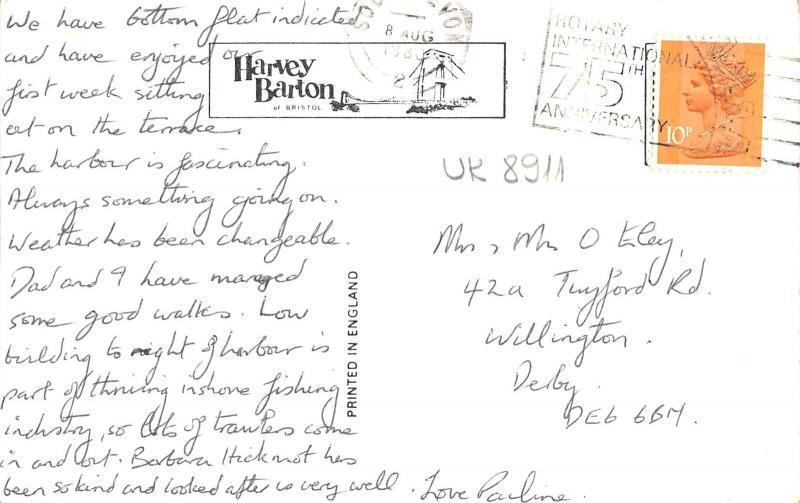 We have bottom flat indicated
and have enjoyed our
first week sitting
out on the terrace.
The harbour is fascinating.
Always something going on.
Weather has been changeable.
Dad and I have managed
some good walks. Low
building to right of harbour is
part of thriving inshore fishing
industry, so lots of trawlers come
in and out. Barbara Hickmot has
been so kind and looked after us very well. Love Pauline.
Harvey
Barton
of BRISTOL
PRINTED IN ENGLAND
8 AUG
1980
ROTARY
INTERNATIONAL
75TH
ANNIVERSARY
10P
UK 8911
Mr & Mrs O Eley,
42a Twyford Rd.
Willington.
Derby.
DE6 6BM.